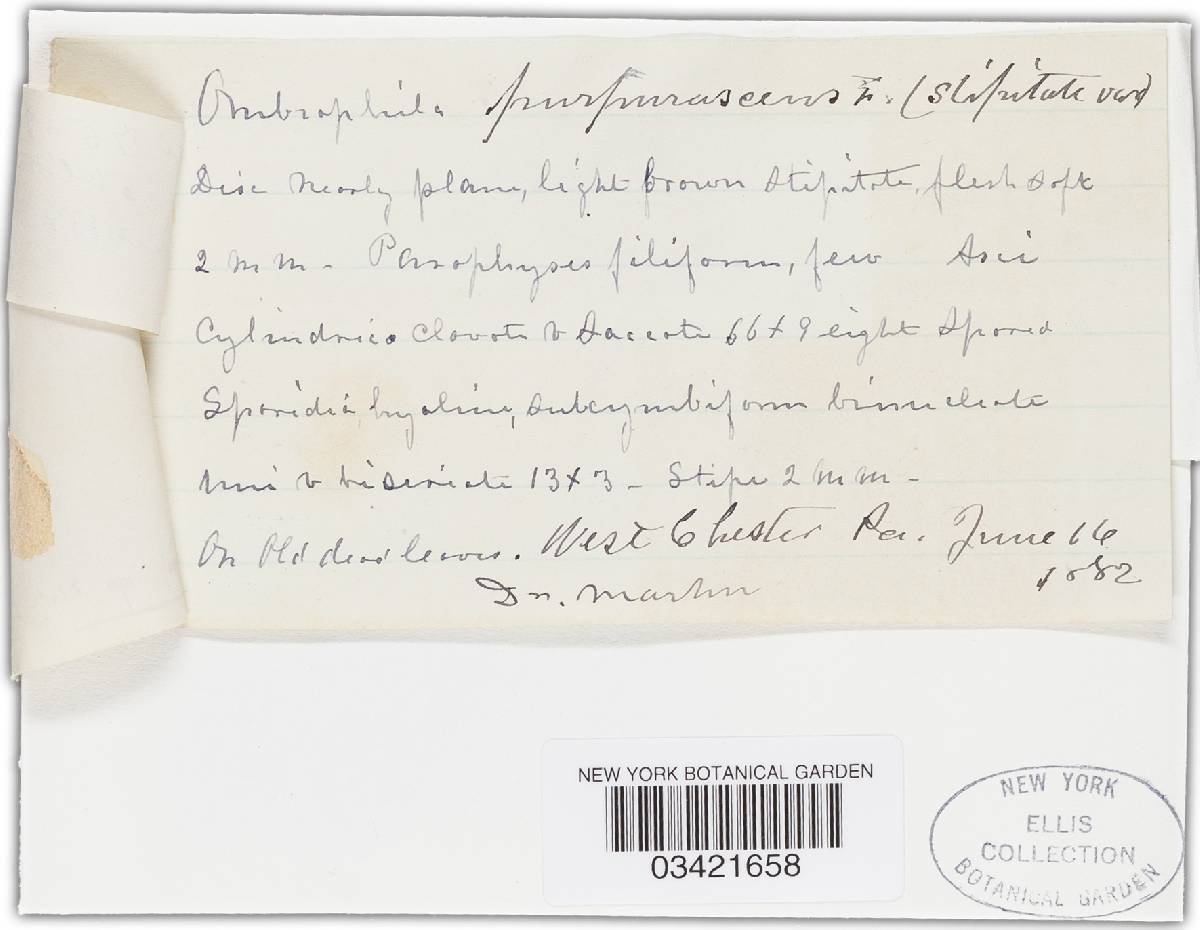 Ombrophila purpurascens F. (Stipitate var)
Disc nearly plane, light brown stipitate, flesh soft
2 mm - Paraphyses filiform, few Asci
Cylindrico clavate & saccate 66 x 9 eight spored
Sporidia hyaline, subcymbiform binucleate
uni & biseriate 13 x 3 - Stipe 2 mm -
On old dead leaves. West Chester Pa. June 16
1882
Dr. Martin
NEW YORK BOTANICAL GARDEN
03421658
NEW YORK
ELLIS
COLLECTION
BOTANICAL GARDEN